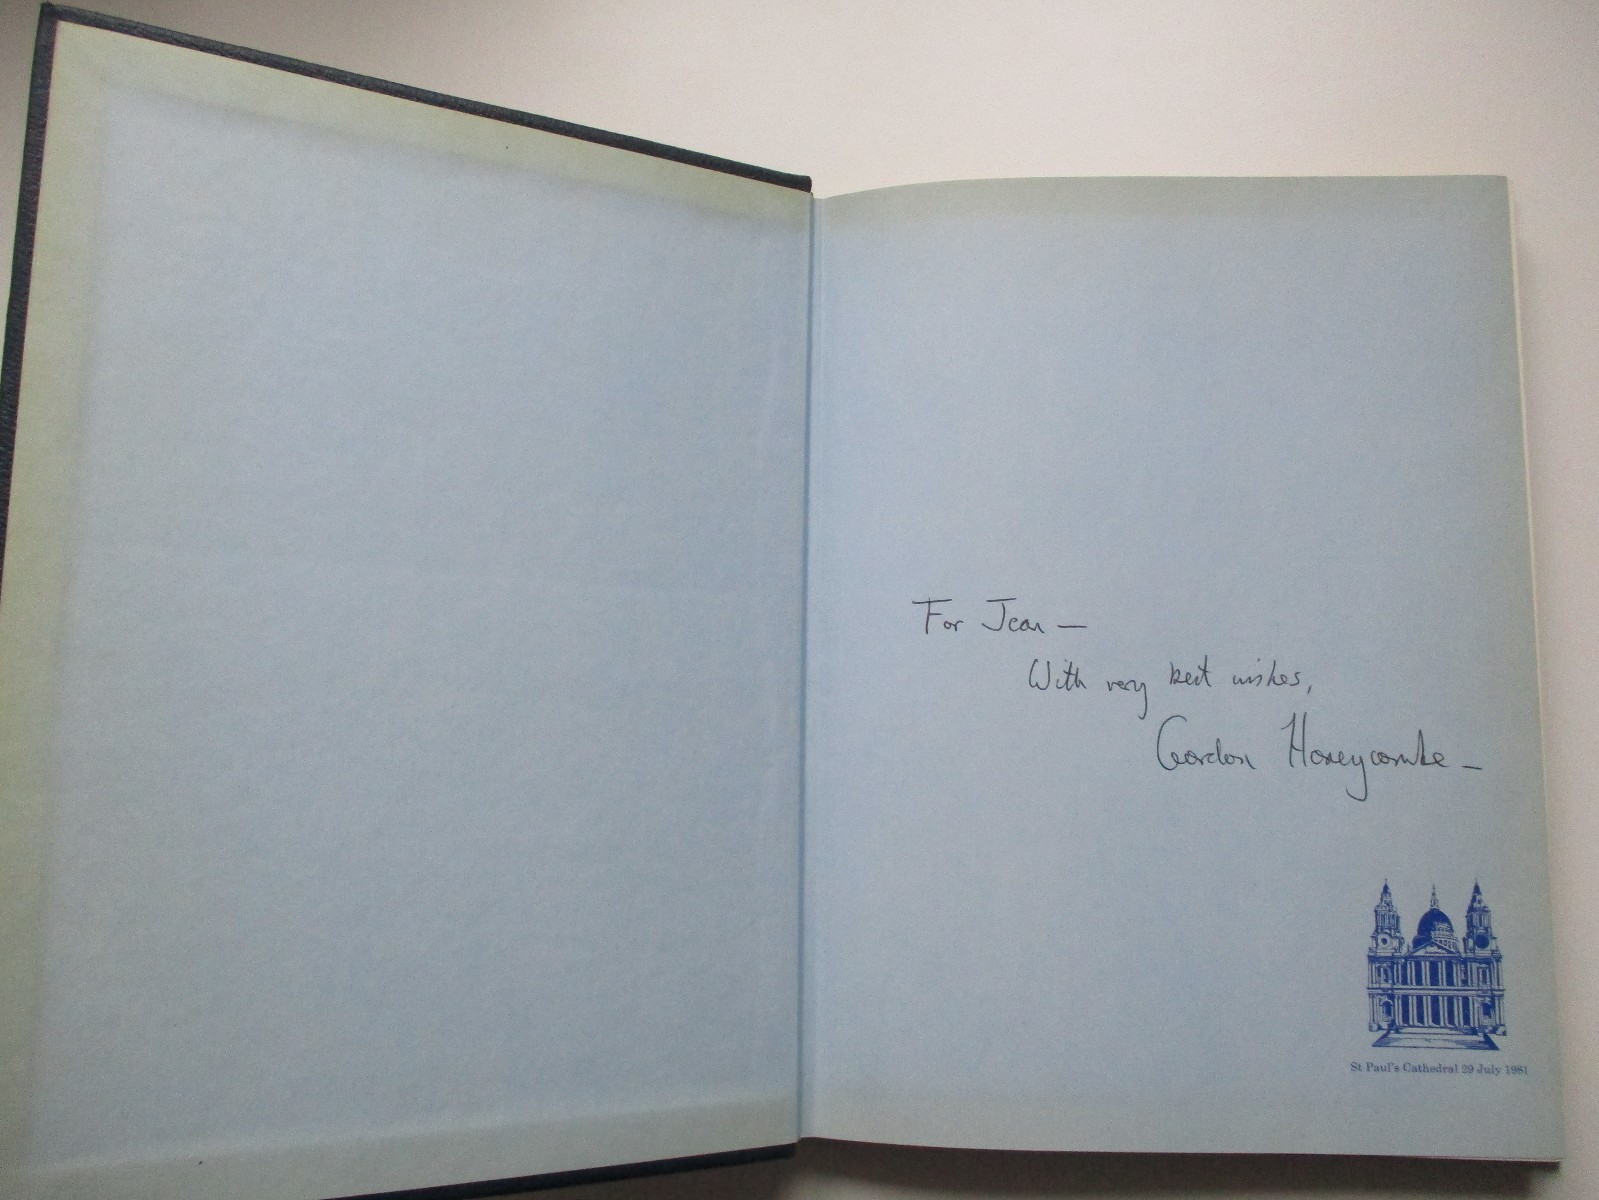 For Jean —
With very best wishes,
Gordon Honeycombe —
St Paul's Cathedral 29 July 1981